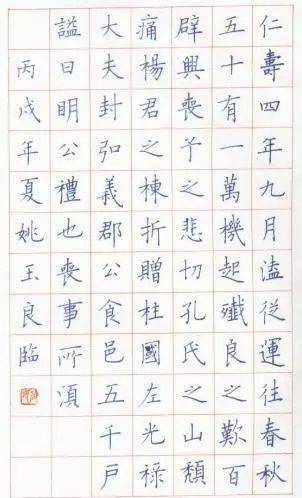 仁壽四年九月溘從運往春秋
五十有一萬機起殲良之歎百
辟興喪予之悲切孔氏之山頹
痛楊君之棟折贈柱國左光祿
大夫封弘義郡公食邑五千戶
諡曰明公禮也喪事所須
丙戌年夏姚玉良臨